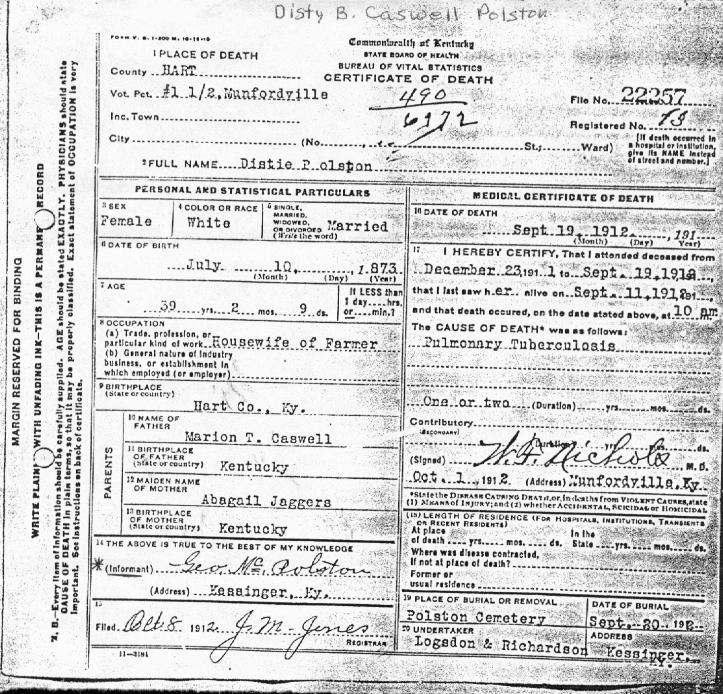 Disty B. Caswell Polston
FORM V. S. 1-200 M. 10-16-10
1 PLACE OF DEATH
County HART
Vot. Pct. #1 1/2, Munfordville
Inc. Town
City (No. St.; Ward)
Commonwealth of Kentucky
STATE BOARD OF HEALTH
BUREAU OF VITAL STATISTICS
CERTIFICATE OF DEATH
490
6972
File No. 22257
Registered No. 13
[If death occurred in
a hospital or institution,
give its NAME instead
of street and number.]
2 FULL NAME Distie Polston
PERSONAL AND STATISTICAL PARTICULARS
3 SEX
Female
4 COLOR OR RACE
White
5 SINGLE,
MARRIED,
WIDOWED
OR DIVORCED
(Write the word)
Married
6 DATE OF BIRTH
July 10, 1873
(Month) (Day) (Year)
7 AGE
39 yrs. 2 mos. 9 ds.
If LESS than
1 day....hrs.
or....min.?
8 OCCUPATION
(a) Trade, profession, or
particular kind of work Housewife of Farmer
(b) General nature of industry
business, or establishment in
which employed (or employer)
9 BIRTHPLACE
(State or country)
Hart Co., Ky.
PARENTS
10 NAME OF
FATHER
Marion T. Caswell
11 BIRTHPLACE
OF FATHER
(State or country) Kentucky
12 MAIDEN NAME
OF MOTHER
Abagail Jaggers
13 BIRTHPLACE
OF MOTHER
(State or country) Kentucky
14 THE ABOVE IS TRUE TO THE BEST OF MY KNOWLEDGE
*(Informant) Geo. Mc. Polston
(Address) Kessinger, Ky.
15
Filed Oct 8 1912 J. M. Jones
REGISTRAR
11-3184
MEDICAL CERTIFICATE OF DEATH
16 DATE OF DEATH
Sept 19, 1912, 191
(Month) (Day) Year)
17 I HEREBY CERTIFY, That I attended deceased from
December 23, 1911 to Sept. 19, 1912
that I last saw her alive on Sept. 11, 1912
and that death occured, on the date stated above, at 10 am
The CAUSE OF DEATH* was as follows:
Pulmonary Tuberculosis
One or two (Duration) yrs. mos. ds.
Contributory
(SECONDARY)
(Duration) yrs. mos. ds.
(Signed) W. F. Nichols M. D.
Oct. 1, 1912 (Address) Munfordville, Ky.
*State the DISEASE CAUSING DEATH, or, in deaths from VIOLENT CAUSES, state
(1) MEANS OF INJURY; and (2) whether ACCIDENTAL, SUICIDAL OR HOMICIDAL
(18) LENGTH OF RESIDENCE (FOR HOSPITALS, INSTITUTIONS, TRANSIENTS
OR RECENT RESIDENTS)
At place In the
of death yrs. mos. ds. State yrs. mos. ds.
Where was disease contracted,
if not at place of death?
Former or
usual residence
19 PLACE OF BURIAL OR REMOVAL
Polston Cemetery
DATE OF BURIAL
Sept. 20, 191
20 UNDERTAKER
Logsdon & Richardson
ADDRESS
Kessinger, Ky.
MARGIN RESERVED FOR BINDING
WRITE PLAINLY WITH UNFADING INK—THIS IS A PERMANENT RECORD
N. B.—Every item of information should be carefully supplied. AGE should be stated EXACTLY. PHYSICIANS should state
CAUSE OF DEATH in plain terms, so that it may be properly classified. Exact statement of OCCUPATION is very
important. See instructions on back of certificate.